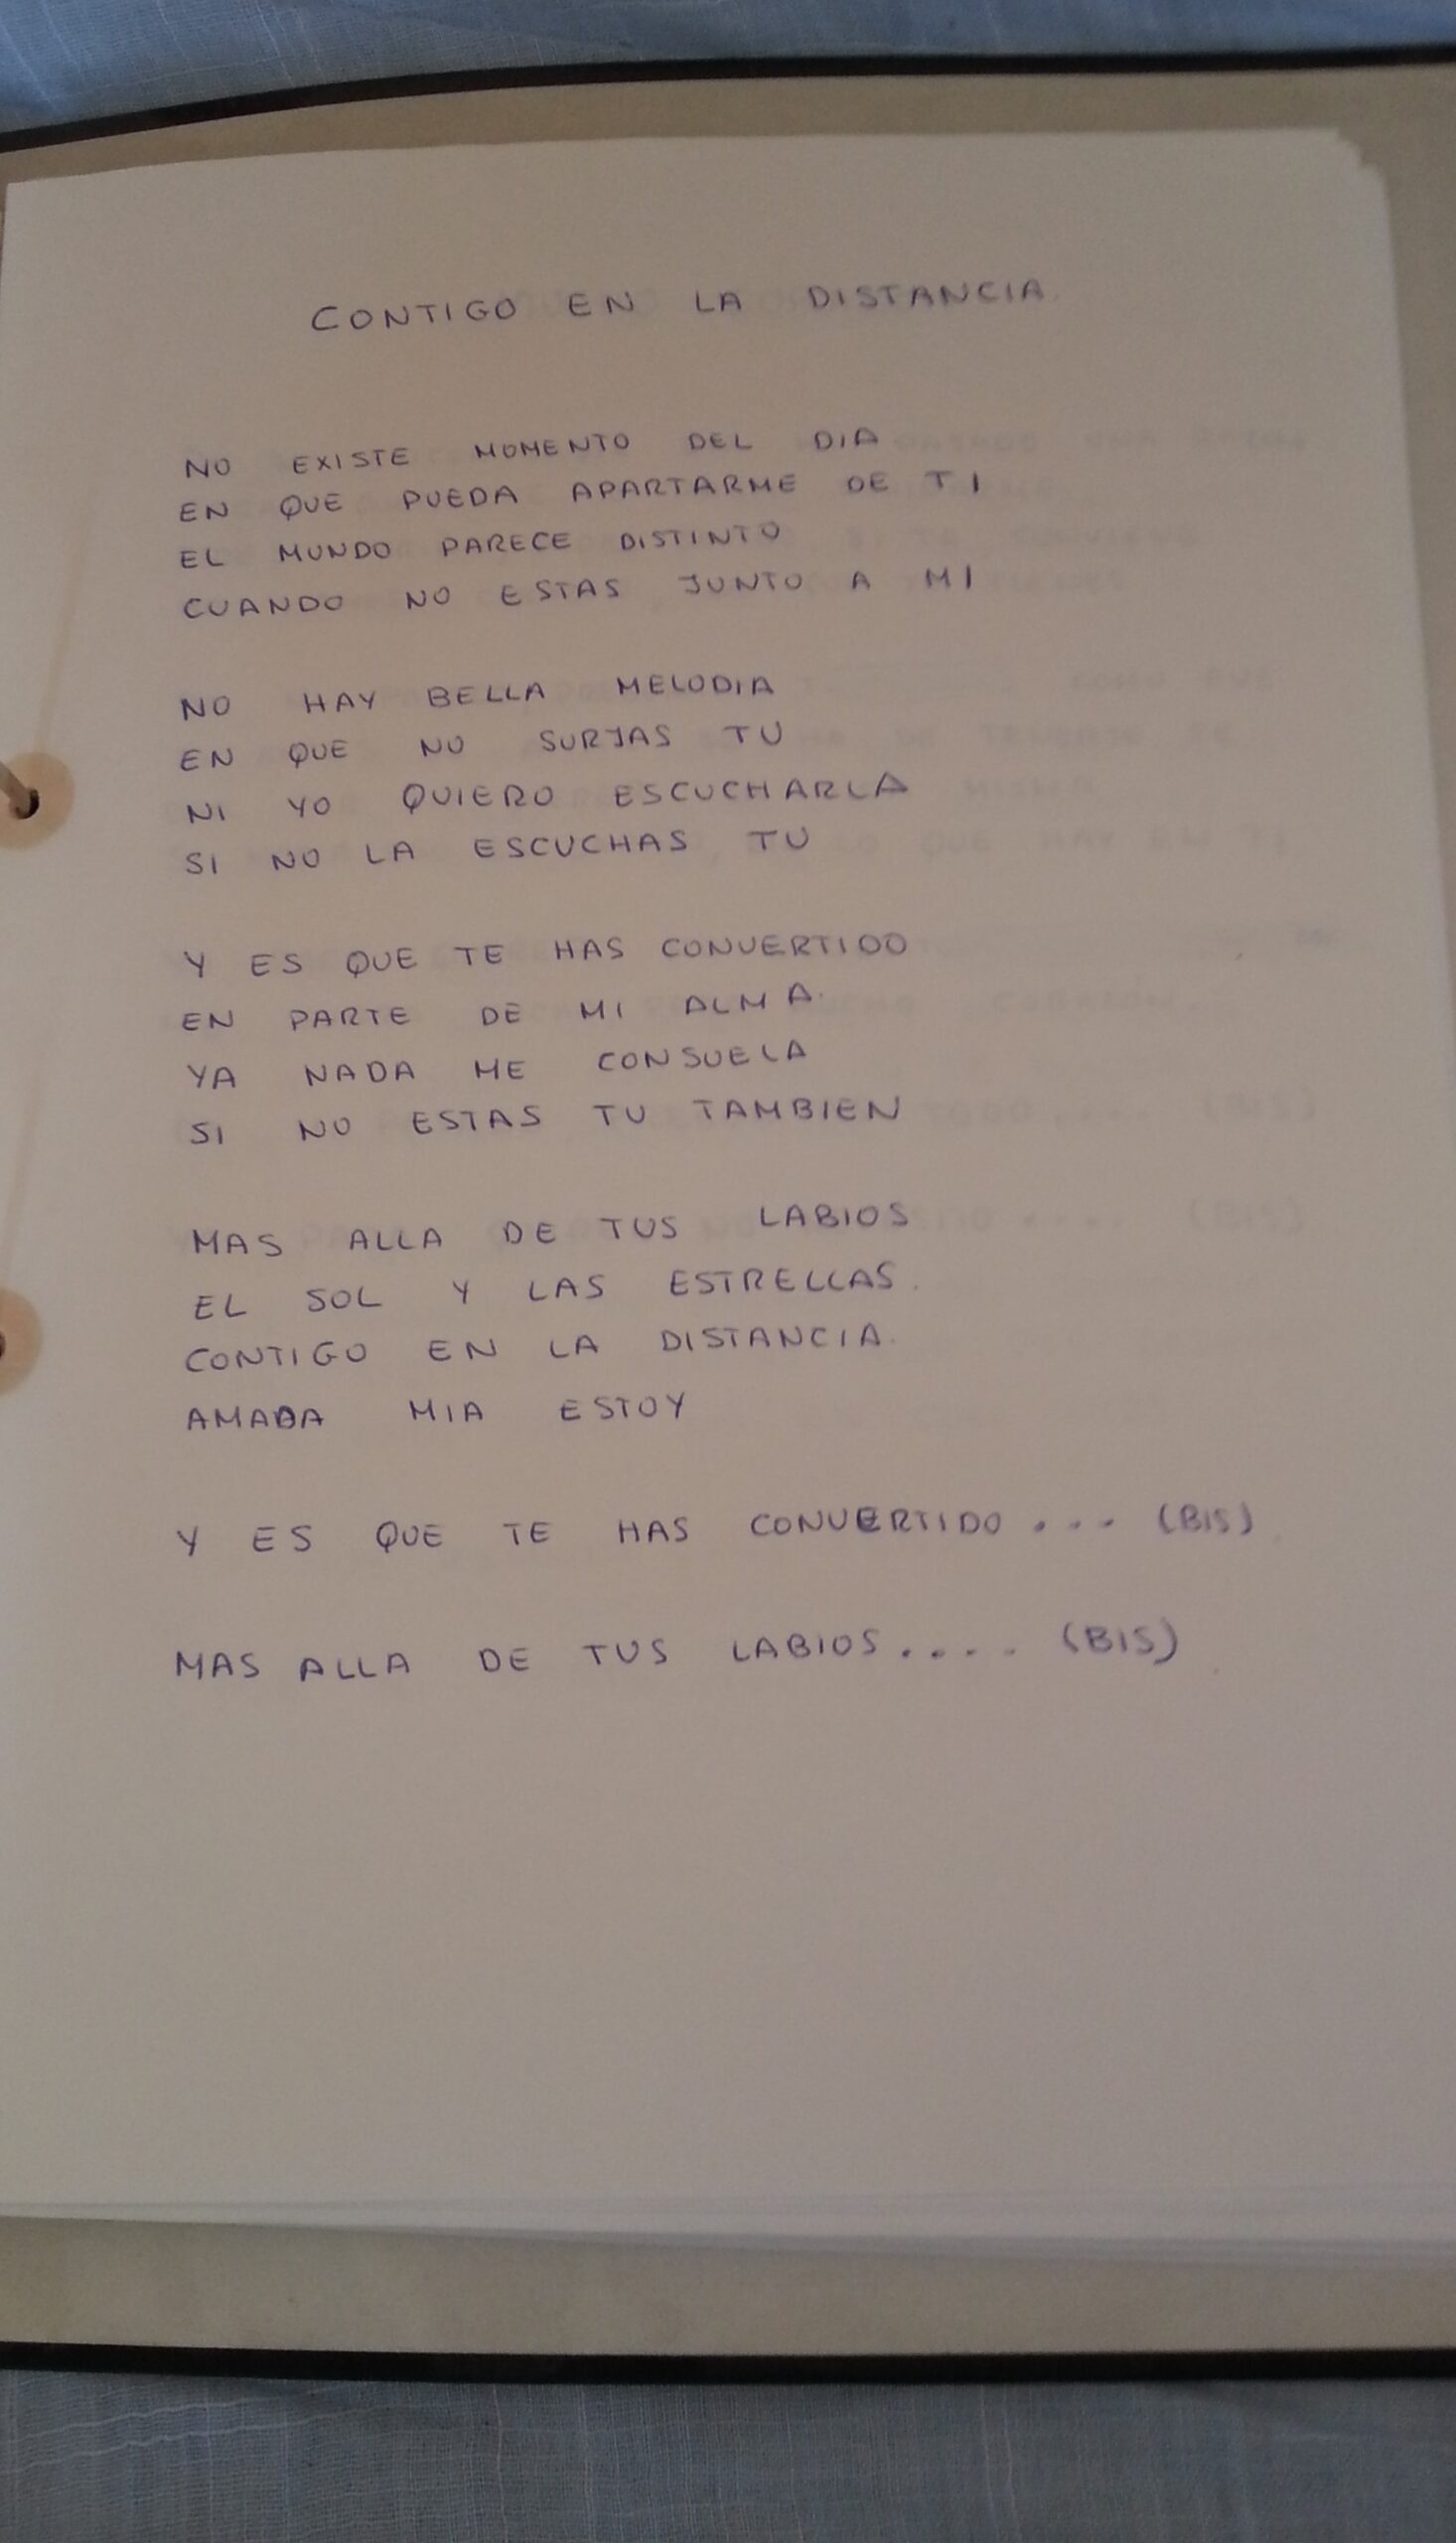 CONTIGO EN LA DISTANCIA
NO EXISTE MOMENTO DEL DIA
EN QUE PUEDA APARTARME DE TI
EL MUNDO PARECE DISTINTO
CUANDO NO ESTAS JUNTO A MI
NO HAY BELLA MELODIA
EN QUE NO SURJAS TU
NI YO QUIERO ESCUCHARLA
SI NO LA ESCUCHAS TU
Y ES QUE TE HAS CONVERTIDO
EN PARTE DE MI ALMA
YA NADA ME CONSUELA
SI NO ESTAS TU TAMBIEN
MAS ALLA DE TUS LABIOS
EL SOL Y LAS ESTRELLAS.
CONTIGO EN LA DISTANCIA.
AMADA MIA ESTOY
Y ES QUE TE HAS CONVERTIDO... (BIS)
MAS ALLA DE TUS LABIOS.... (BIS)